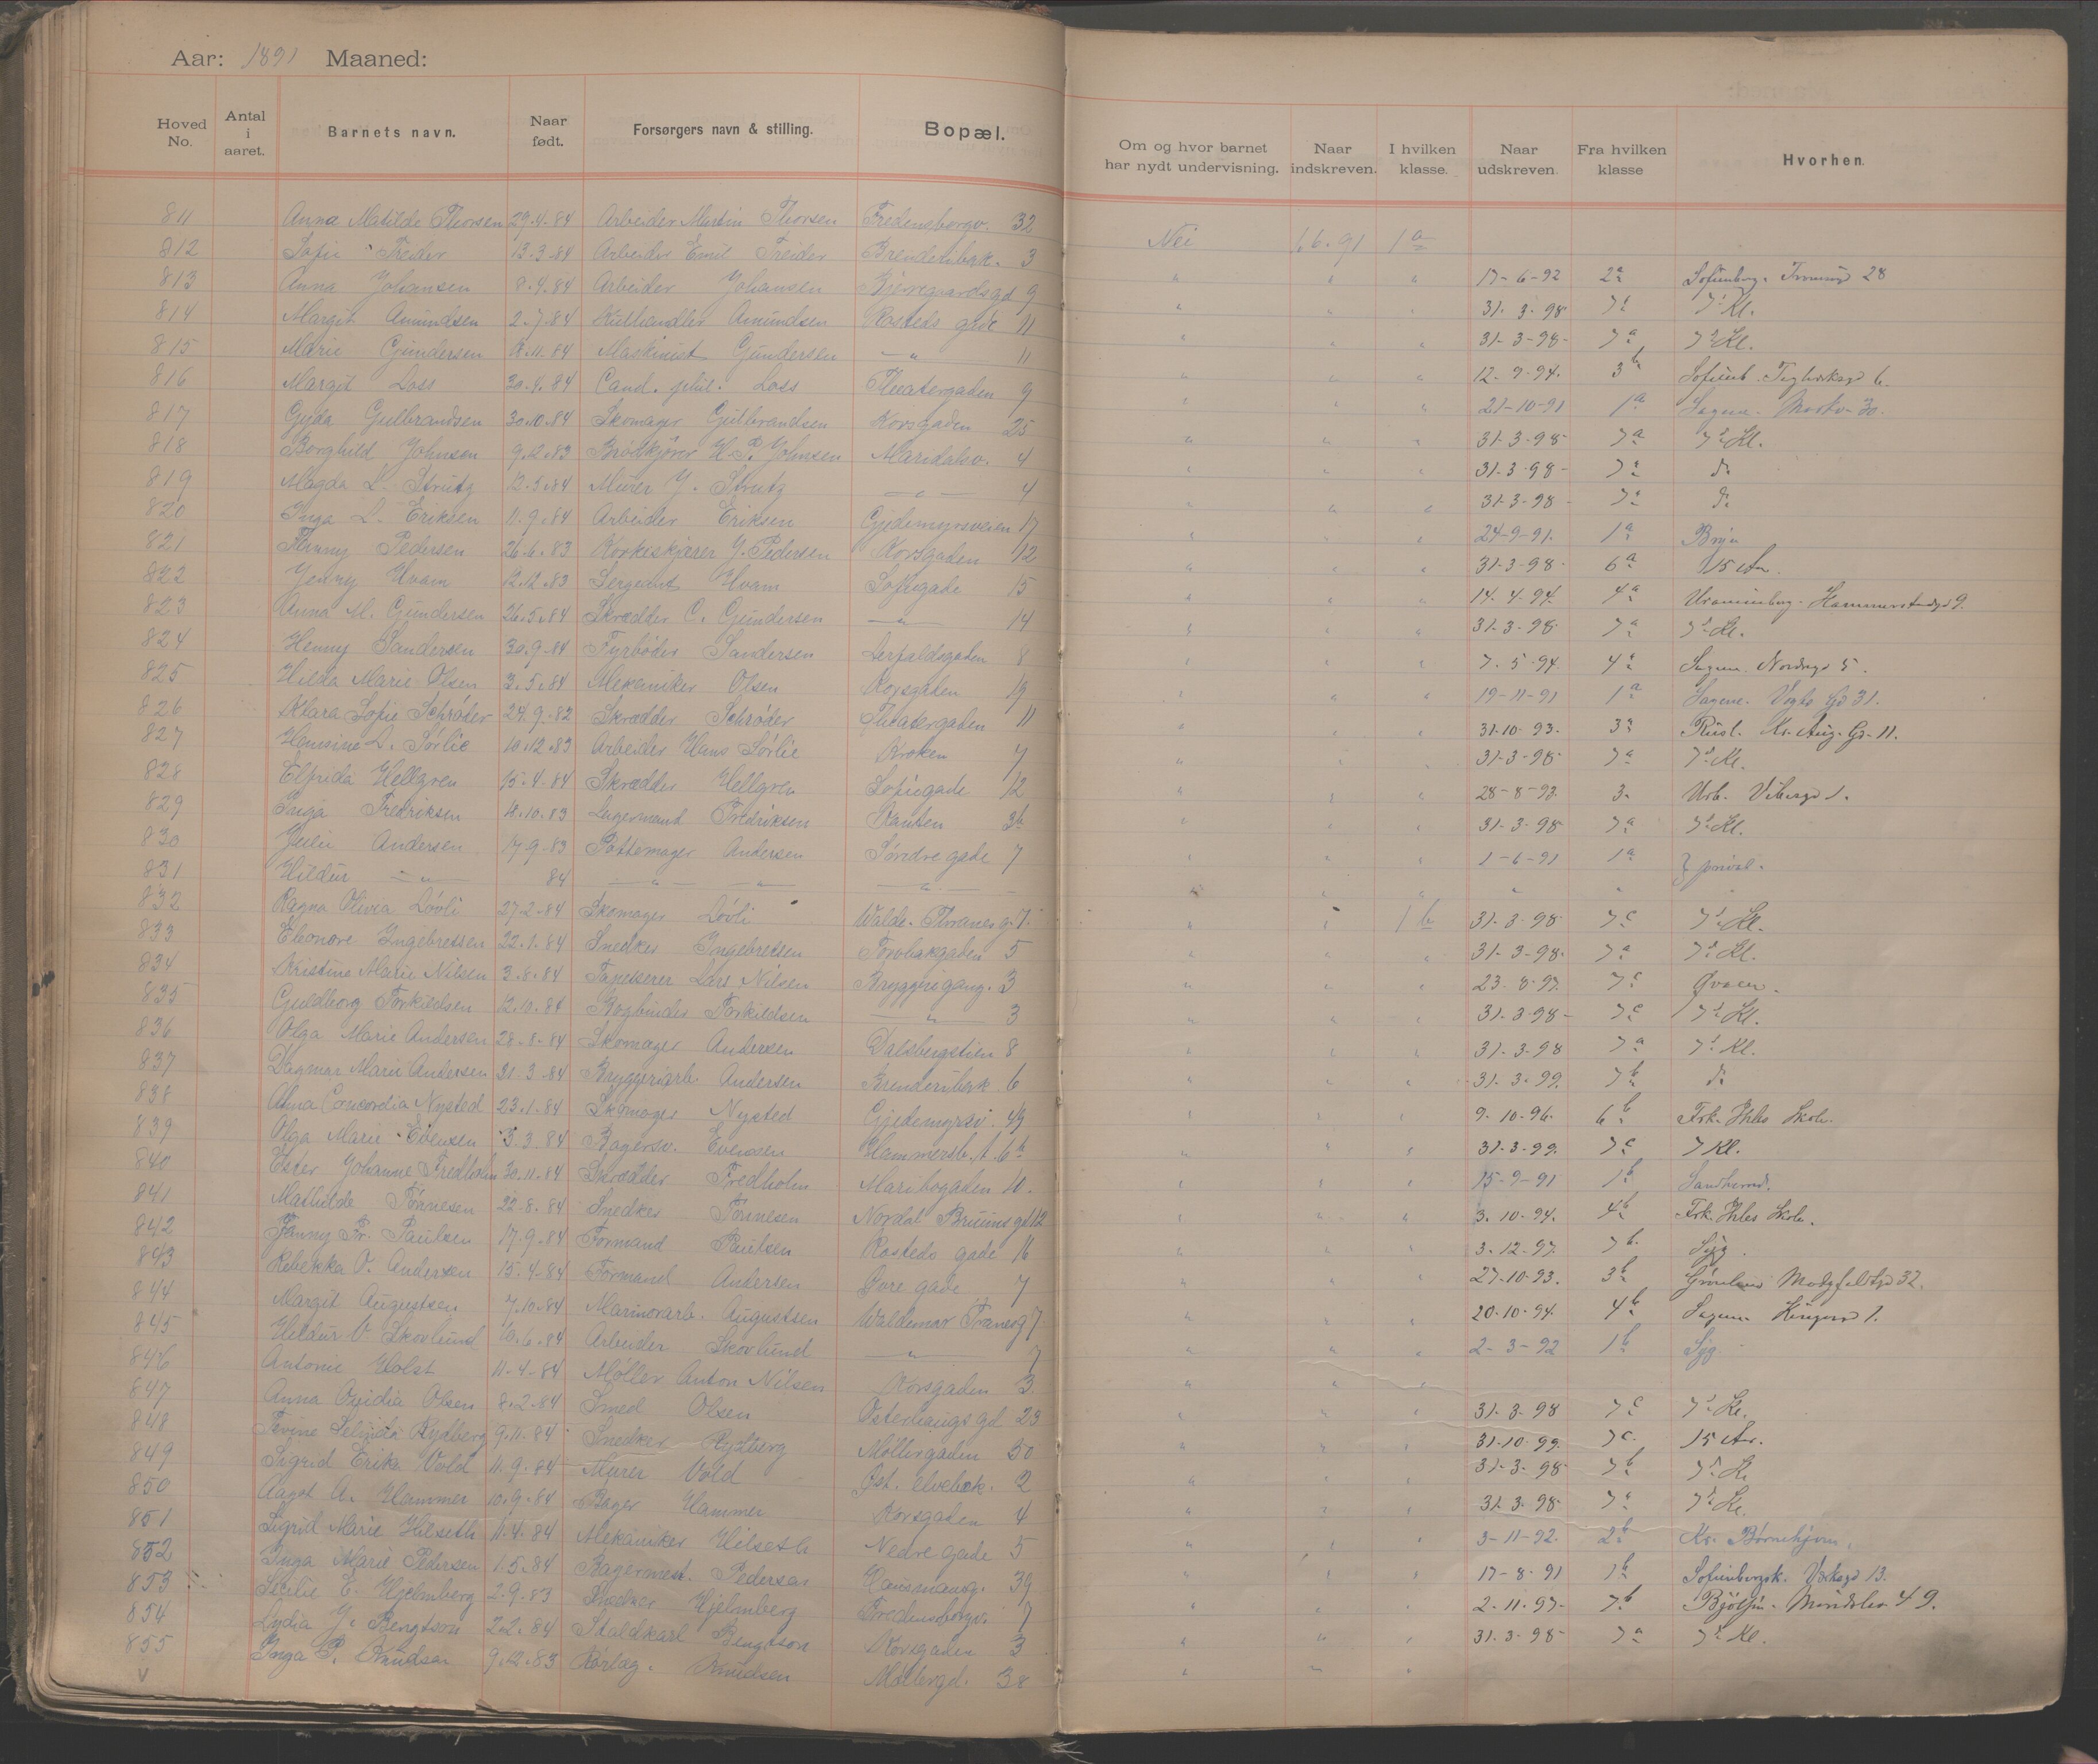 Aar: 1891 Maaned:
Hoved No. Antal i aaret. Barnets navn. Naar født. Forsørgers navn & stilling. Bopæl. Om og hvor barnet har nydt undervisning. Naar indskreven. I hvilken klasse. Naar udskreven. Fra hvilken klasse Hvorhen.
811 Anna Matilde Thorsen 29.4.84 Arbeider Martin Thorsen Fredensborgv. 32 Nei 1.6.91 1a
812 Sofie Treider 13.3.84 Arbeider Emil Treider Brendenbak. 3 " " " 17-6-92 2a Sofienberg. 28
813 Anna Johansen 8.4.84 Arbeider Johansen Bjerregaardsgd 9 " " " 31.3.98 7a 7d Kl.
814 Margit Amundsen 2.7.84 Kulhandler Amundsen Rosteds gade 11 " " " 31-3-98- 7a 7d Kl.
815 Marie Gundersen 18.11.84 Maskinist Gundersen — " — 11 " " " 12-9-94. 3b Sofienb. Teglverksgd 6.
816 Margit Loss 30.4.84 Cand. phil. Loss Theatergaden 9 " " " 21-10-91 1a Sagene. Markv. 30.
817 Gyda Gulbrandsen 30.10.84 Skomager Gulbrandsen Korsgaden 25 " " " 31-3-98 7a 7d Kl.
818 Borghild Johnsen 9.2.83 Brødkjører H. P. Johnsen Maridalsv. 4 " " " 31-3-98- 7a do
819 Magda L. Strutz 12.5.84 Murer J. Strutz — " — 4 " " " 31-3-98- 7a do
820 Inga L. Eriksen 11.9.84 Arbeider Eriksen Gjedemyrsveien 17 " " " 24-9-91. 1a
821 Fanny Pedersen 26.6.83 Korkskjærer J. Pedersen Korsgaden 12 " " " 31-3-98. 6a 15 Aar.
822 Jenny Hvam 12.12.83 Sergeant Hvam Sofiegade 15 " " " 14.4.94. 4a Uranienborg. Hammerstadgd 9.
823 Anna M. Gundersen 26.5.84 Skrædder C. Gundersen — " — 14 " " " 31-3-98 7a 7d Kl.
824 Henny Sandersen 30.9.84 Fyrbøder Sandersen Herfaldsgaden 8 " " " 7.5.94. 4a Sagene. Nordregd 5.
825 Hilda Marie Olsen 3.5.84 Mekaniker Olsen Korsgaden 19 " " " 19-11-91 1a Sagene. Vogts Gd 31.
826 Klara Sofie Schrøder 24.9.82 Skrædder Schrøder Theatergaden 11 " " " 31-10-93. 3a Rusl. Kr. Aug. Gd. 11.
827 Hansine L. Sørlie 10.12.83 Arbeider Hans Sørlie Kroken 7 " " " 31-3-98 7a 7d Kl.
828 Elfrida Hellgren 15.4.84 Skrædder Hellgren Sofiegade 12 " " " 28-8-93. 3. Urb. Vibesgd 1.
829 Inga Fredriksen 18.10.83 Lagermand Fredriksen 3b " " " 31-3-98 7a 7d Kl.
830 Julie Andersen 17.9.83 Pottemager Andersen Søndre gade 7 " " " 1-6-91 1a } privat.
831 Hildur — " — 84 — " — — " — — " — " " " " "
832 Ragna Olivia Løvli 27.2.84 Skomager Løvli Waldr. Thranes g. 7. " " 1b 31-3-98 7c 7d Kl.
833 Eleonore Ingebretsen 22.1.84 Snedker Ingebretsen Torvbakgaden 5 " " " 31-3-98. 7a 7d Kl.
834 Kristine Marie Nilsen 3.8.84 Tapetserer Lars Nilsen Bryggerigang. 3 " " " 23.8.97. 7c
835 Guldborg Torkildsen 12.10.84 Bogbinder Torkildsen — " — 3 " " " 31.3.98- 7c 7d Kl.
836 Olga Marie Andersen 28.8.84 Skomager Andersen Dalsbergstien 8 " " " 31.3.98 7a 7d Kl.
837 Dagmar Marie Andersen 31.3.84 Bryggeriarb. Andersen Brenderibak 6 " " " 31.3.99. 7b do
838 Anna Concordia Nysted 23.1.84 Skomager Nysted Gjedemyrsv. 49 " " " 9.10.96. 6b Frk. Skole.
839 Olga Marie Evensen 3.3.84 Bagersv. Evensen Hammersb. t. 6b " " " 31-3-99. 7c 7 Kl.
840 Ester Johanne Fredholm 30.11.84 Skrædder Fredholm Maribogaden 10. " " " 15-9-91 1b
841 Mathilde Tønnesen 22.8.84 Snedker Tønnesen Nordal Bruuns gd 12 " " " 3.10.94. 4b Frk. Skole.
842 Fanny Fr. Paulsen 17.9.84 Formand Paulsen Rosteds gade 16 " " " 3.12.97. 7b. Syg.
843 Rebekka O. Andersen 15.4.84 Formand Andersen Øvre gade 7 " " " 27-10-93. 3b Grønland Motzfeldtgd 32.
844 Margit Augustsen 7.10.84 Marmorarb. Augustsen Waldemar Tranesg 7 " " " 20-10-94. 4b Sagene 1.
845 Hildur V. Skovlund 10.6.84 Arbeider Skovlund — " — 7 " " " 2-3-92 1b Syg
846 Antonie Holst 11.4.84 Møller Anton Nilsen Korsgaden 3. " " "
847 Anna Ovidia Olsen 8.2.84 Smed Olsen Osterhaugs gd 23 " " " 31.3.98 7c 7d Kl.
848 Rydberg 9.11.84 Snedker Rydberg Møllergaden 50 " " " 31-10-99. 7c. 15 Aar.
849 Sigrid Erika Vold 11.9.84 Murer Vold Øst. elvebak. 2 " " " 31-3-98 7b 7d Kl
850 Aagot A. Hammer 10.9.84 Bager Hammer Korsgaden 4 " " " 31.3.98. 7a 7d Kl.
851 Sigrid Marie Hilseth 11.4.84 Mekaniker Hilseth Nedre gade 5 " " " 3-11-92. 2b Kr. Børnehjem.
852 Inga Marie Pedersen 1.5.84 Bagermest. Pedersen Hausmansg. 39 " " " 17-8-91 1b Sofienbergsk. 13.
853 Secilie E. Hjelmberg 2.9.83 Snedker Hjelmberg Fredensborgv. 7 " " " 2-11-97- 7b Bjølsen. 49.
854 Lydia J. Bengtson 22.84 Staldkarl Bengtson Korsgaden 3 " " " 31.3.98- 7a 7d Kl.
855 Inga P. Knudsen 9.12.83 Rørlæg. Knudsen Møllergd. 38 " " "
V